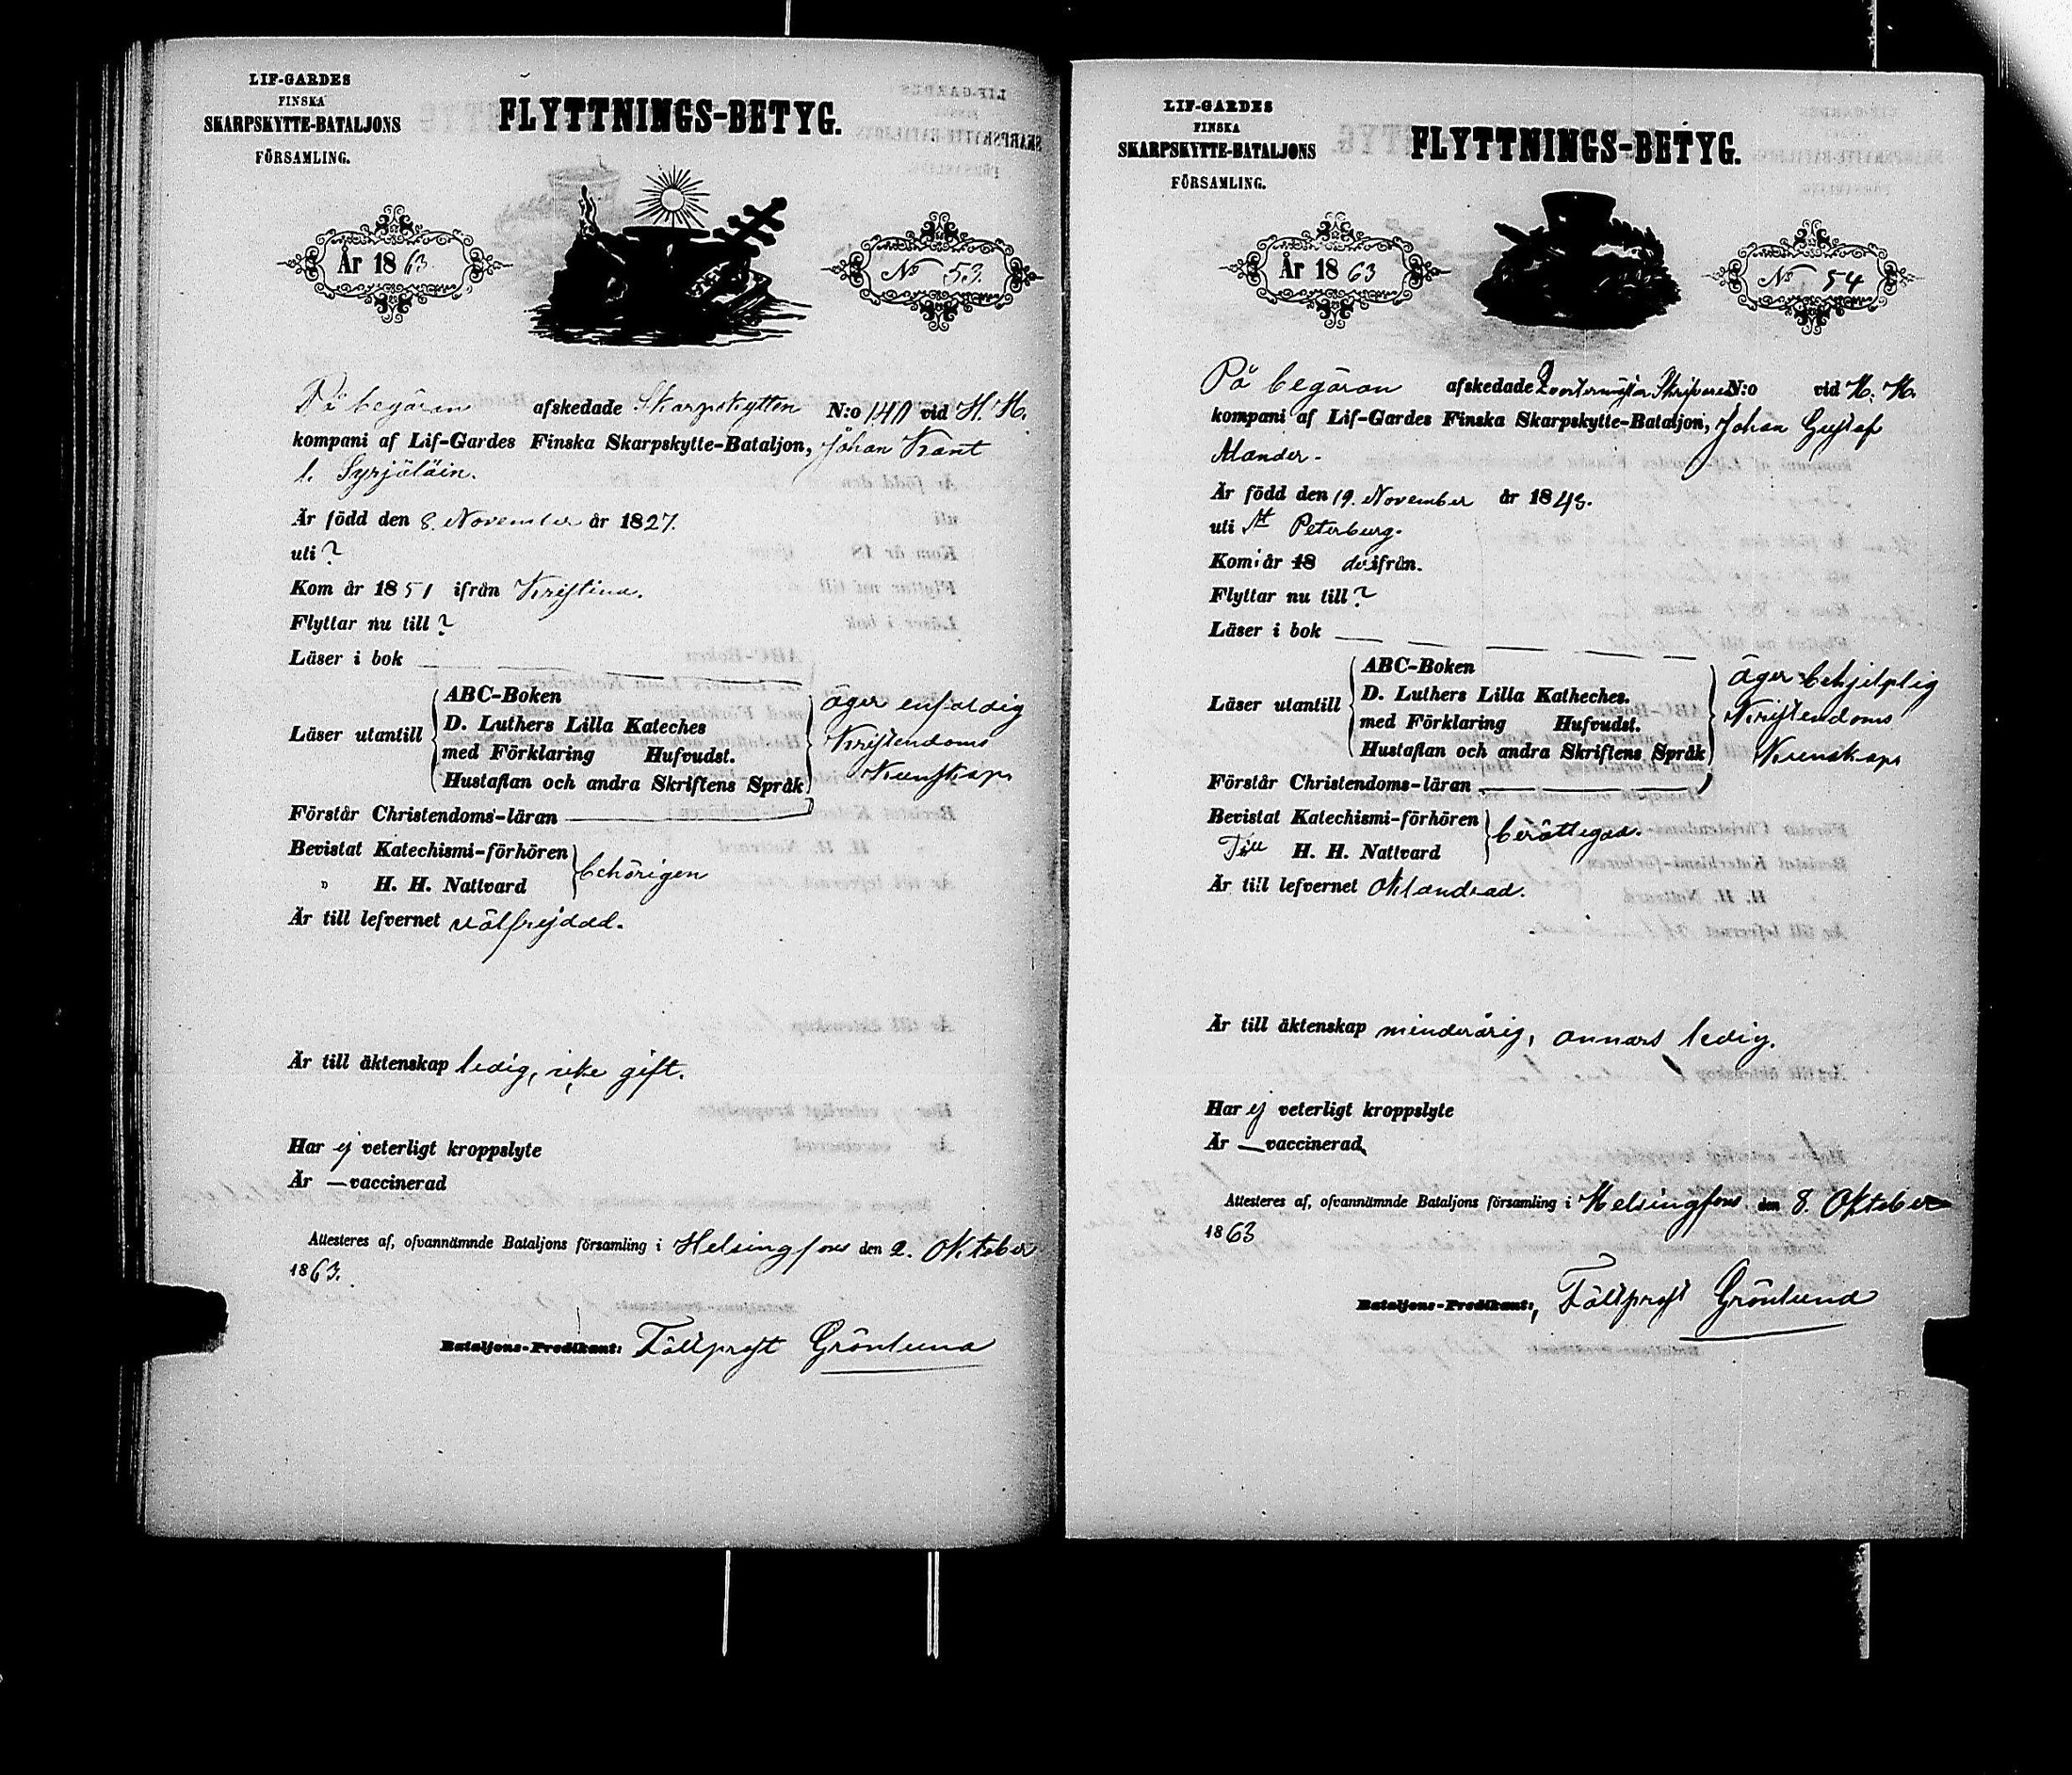 LIF-GARDES
FINSKA
SKARPSKYTTE-BATALJONS
FÖRSAMLING.
FLYTTNINGS-BETYG.
År 1863.
No 53.
På begäran afskedade Skarpskytten N:o 140 vid H. H.
kompani af Lif-Gardes Finska Skarpskytte-Bataljon, Johan Kant
l. Syrjäläin.
Är född den 8. November år 1827.
uti ?
Kom år 1851 ifrån Kristina.
Flyttar nu till ?
Läser i bok
Läser utantill
ABC-Boken
D. Luthers Lilla Kateches
med Förklaring Hufvudst.
Hustaflan och andra Skriftens Språk
äger enfaldig
Kristendoms
Kunskap
Förstår Christendoms-läran
Bevistat Katechismi-förhören
" H. H. Nattvard
behörigen
Är till lefvernet välfrejdad.
Är till äktenskap ledig, icke gift.
Har ej veterligt kroppslyte
Är — vaccinerad
Attesteres af, ofvannämnde Bataljons församling i Helsingfors den 2. Oktober
1863.
Bataljons-Predikant: Fältprost Grönlund
LIF-GARDES
FINSKA
SKARPSKYTTE-BATALJONS
FÖRSAMLING.
FLYTTNINGS-BETYG.
År 1863
No 54
På begäran afskedade N:o vid H. H.
kompani af Lif-Gardes Finska Skarpskytte-Bataljon, Johan Gustaf
Alander.
Är född den 19. November år 1843.
uti St Peterburg.
Kom i år 18 derifrån.
Flyttar nu till ?
Läser i bok
Läser utantill
ABC-Boken
D. Luthers Lilla Katheches.
med Förklaring Hufvudst.
Hustaflan och andra Skriftens Språk
äger behjelplig
Kristendoms
Kunskap
Förstår Christendoms-läran
Bevistat Katechismi-förhören
Till H. H. Nattvard
berättigad.
Är till lefvernet oklandrad.
Är till äktenskap minderårig, annars ledig.
Har ej veterligt kroppslyte
Är — vaccinerad
Attesteres af, ofvannämnde Bataljons församling i Helsingfors den 8. Oktober
1863
Bataljons-Predikant: Fältprost Grönlund